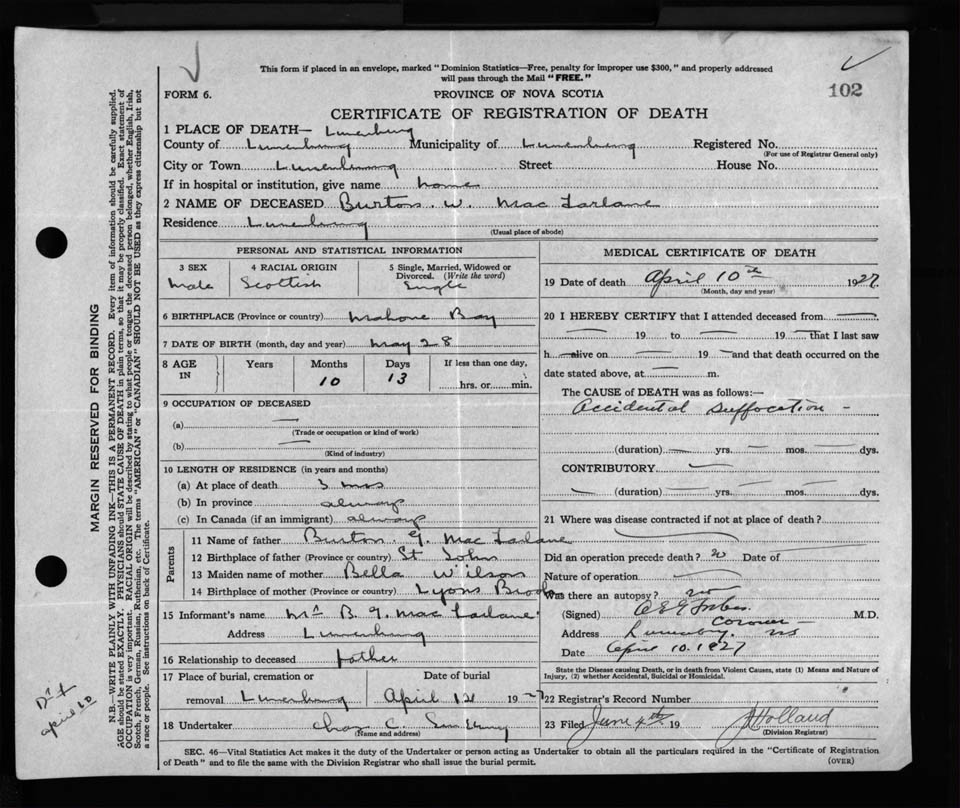 This form if placed in an envelope, marked "Dominion Statistics—Free, penalty for improper use $300," and properly addressed
will pass through the Mail "FREE."
FORM 6.
PROVINCE OF NOVA SCOTIA
102
CERTIFICATE OF REGISTRATION OF DEATH
1 PLACE OF DEATH— Lunenburg
County of Lunenburg Municipality of Lunenburg Registered No.
(For use of Registrar General only)
City or Town Lunenburg Street House No.
If in hospital or institution, give name home
2 NAME OF DECEASED Burton W. MacFarlane
Residence Lunenburg
(Usual place of abode)
PERSONAL AND STATISTICAL INFORMATION
3 SEX
Male
4 RACIAL ORIGIN
Scottish
5 Single, Married, Widowed or
Divorced. (Write the word)
Single
6 BIRTHPLACE (Province or country) Mahone Bay
7 DATE OF BIRTH (month, day and year) May 28
8 AGE IN
Years Months Days If less than one day,
10 13 hrs. or min.
9 OCCUPATION OF DECEASED
(a)
(Trade or occupation or kind of work)
(b)
(Kind of industry)
10 LENGTH OF RESIDENCE (in years and months)
(a) At place of death 3 mos
(b) In province always
(c) In Canada (if an immigrant) always
Parents
11 Name of father Burton G. MacFarlane
12 Birthplace of father (Province or country) St John
13 Maiden name of mother Bella Wilson
14 Birthplace of mother (Province or country) Lyons Brook
15 Informant's name Mr B. G. MacFarlane
Address Lunenburg
16 Relationship to deceased father
17 Place of burial, cremation or Date of burial
removal Lunenburg April 12 1927
18 Undertaker Chas C.
(Name and address)
MEDICAL CERTIFICATE OF DEATH
19 Date of death April 10th 1927
(Month, day and year)
20 I HEREBY CERTIFY that I attended deceased from
19 to 19 that I last saw
h alive on 19 and that death occurred on the
date stated above, at m.
The CAUSE of DEATH was as follows:
Accidental suffocation
(duration) yrs. mos. dys.
CONTRIBUTORY
(duration) yrs. mos. dys.
21 Where was disease contracted if not at place of death?
Did an operation precede death? no Date of
Nature of operation
Was there an autopsy? no
(Signed) M.D.
Coroner
Address Lunenburg. NS
Date April 10. 1927
State the Disease causing Death, or in death from Violent Causes, state (1) Means and Nature of
Injury, (2) whether Accidental, Suicidal or Homicidal.
22 Registrar's Record Number
23 Filed June 4th 19 Holland
(Division Registrar)
SEC. 46—Vital Statistics Act makes it the duty of the Undertaker or person acting as Undertaker to obtain all the particulars required in the "Certificate of Registration
of Death" and to file the same with the Division Registrar who shall issue the burial permit.
(OVER)
MARGIN RESERVED FOR BINDING
N.B.—WRITE PLAINLY WITH UNFADING INK—THIS IS A PERMANENT RECORD. Every item of information should be carefully supplied.
AGE should be stated EXACTLY. PHYSICIANS should STATE CAUSE OF DEATH in plain terms, so that it may be properly classified. Exact statement of
OCCUPATION is very important. RACIAL ORIGIN will be described by stating to what people or tongue the deceased person belonged, whether English, Irish,
Scotch, French, German, Russian, Ruthenian, etc. The terms "AMERICAN" or "CANADIAN" SHOULD NOT BE USED as they express citizenship but not
a race or people. See instructions on back of Certificate.
April 10